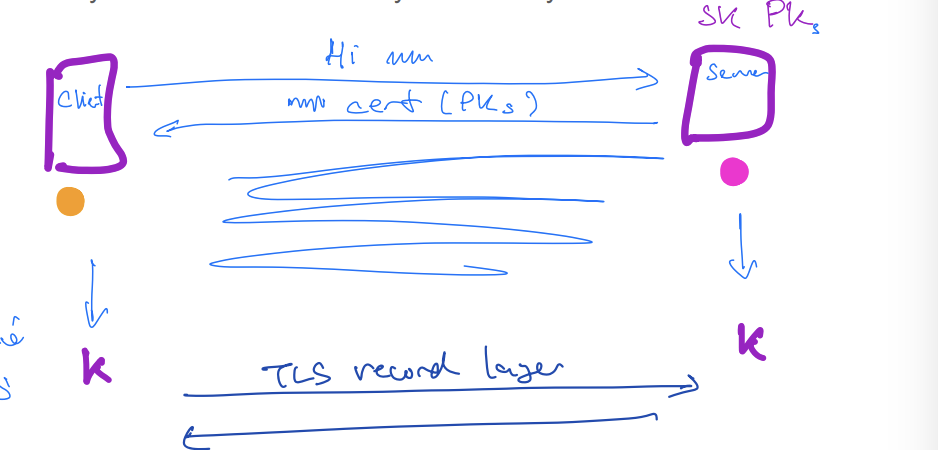 SK PKs
Hi
Client
Server
cert (PKs)
K
K
TLS record layer